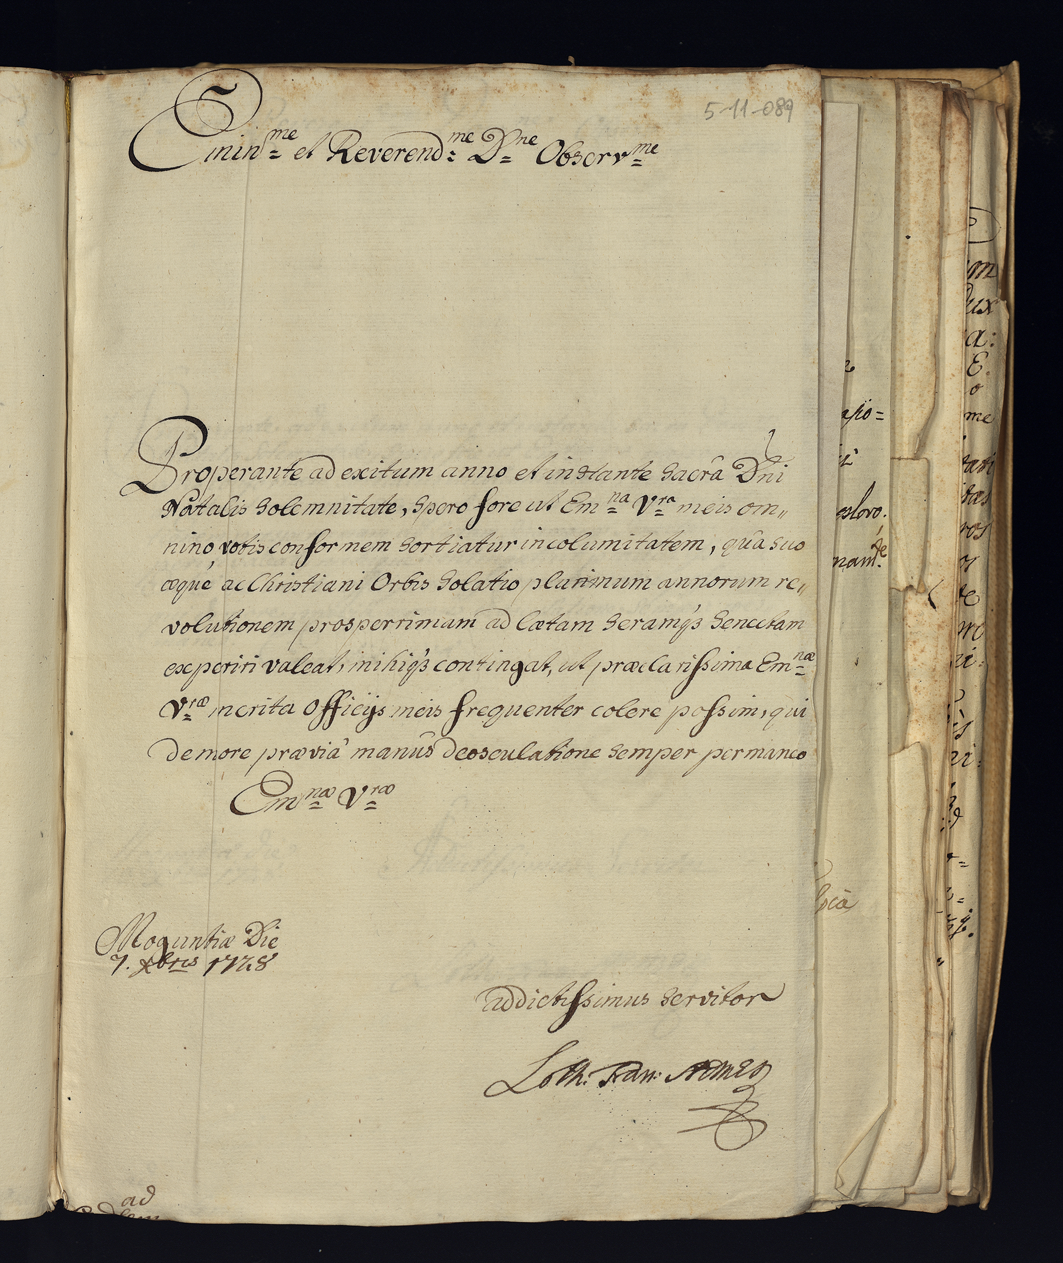 5-11-089
Emin:me et Reverend:me D:ne Observ:me
Properante ad exitum anno et instante Sacrâ Dni
Natalis Solemnitate, spero fore ut Em:na V:ra meis om„
nino votis conformem sortiatur incolumitatem, quâ suo
æquè ac Christiani Orbis Solatio plurimum annorum re„
volutionem prosperrimam ad lætam seramq3 Senectam
experiri valeat, mihiq3 contingat, ut præclarissima Em:næ
V:ræ merita Officijs meis frequenter colere possim, qui
de more præviâ manûs deosculatione semper permaneo
Em:næ V:ræ
Moguntiæ Die
7. Xbris 1728
addictissimus servitor
Loth: Fran:
ad